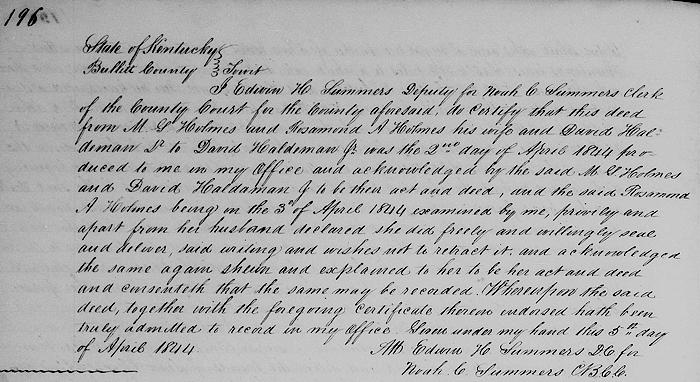 196
State of Kentucky
Bullitt County } Towit
I Edwin H. Summers Deputy for Noah C. Summers Clerk
of the County Court for the County aforesaid, do certify that this deed
from M. L. Holmes and Rosamond A Holmes his wife and David Hal-
deman Sr to David Haldeman Jr was the 2nd day of April 1844 pro-
duced to me in my Office and acknowledged by the said M. L Holmes
and David Haldaman to be their act and deed, and the said Rosamond
A Holmes being on the 3d of April 1844 examined by me, privily and
apart from her husband declared she did freely and willingly seal
and deliver, said writing and wishes not to retract it, and acknowledged
the same again shewn and explained to her to be her act and deed
and consenteth that the same may be recorded. Whereupon the said
deed, together with the foregoing certificate thereon indorsed hath been
truly admitted to record in my Office. Given under my hand this 5th day
of April 1844
Att Edwin H. Summers DC for
Noah C. Summers CBCC